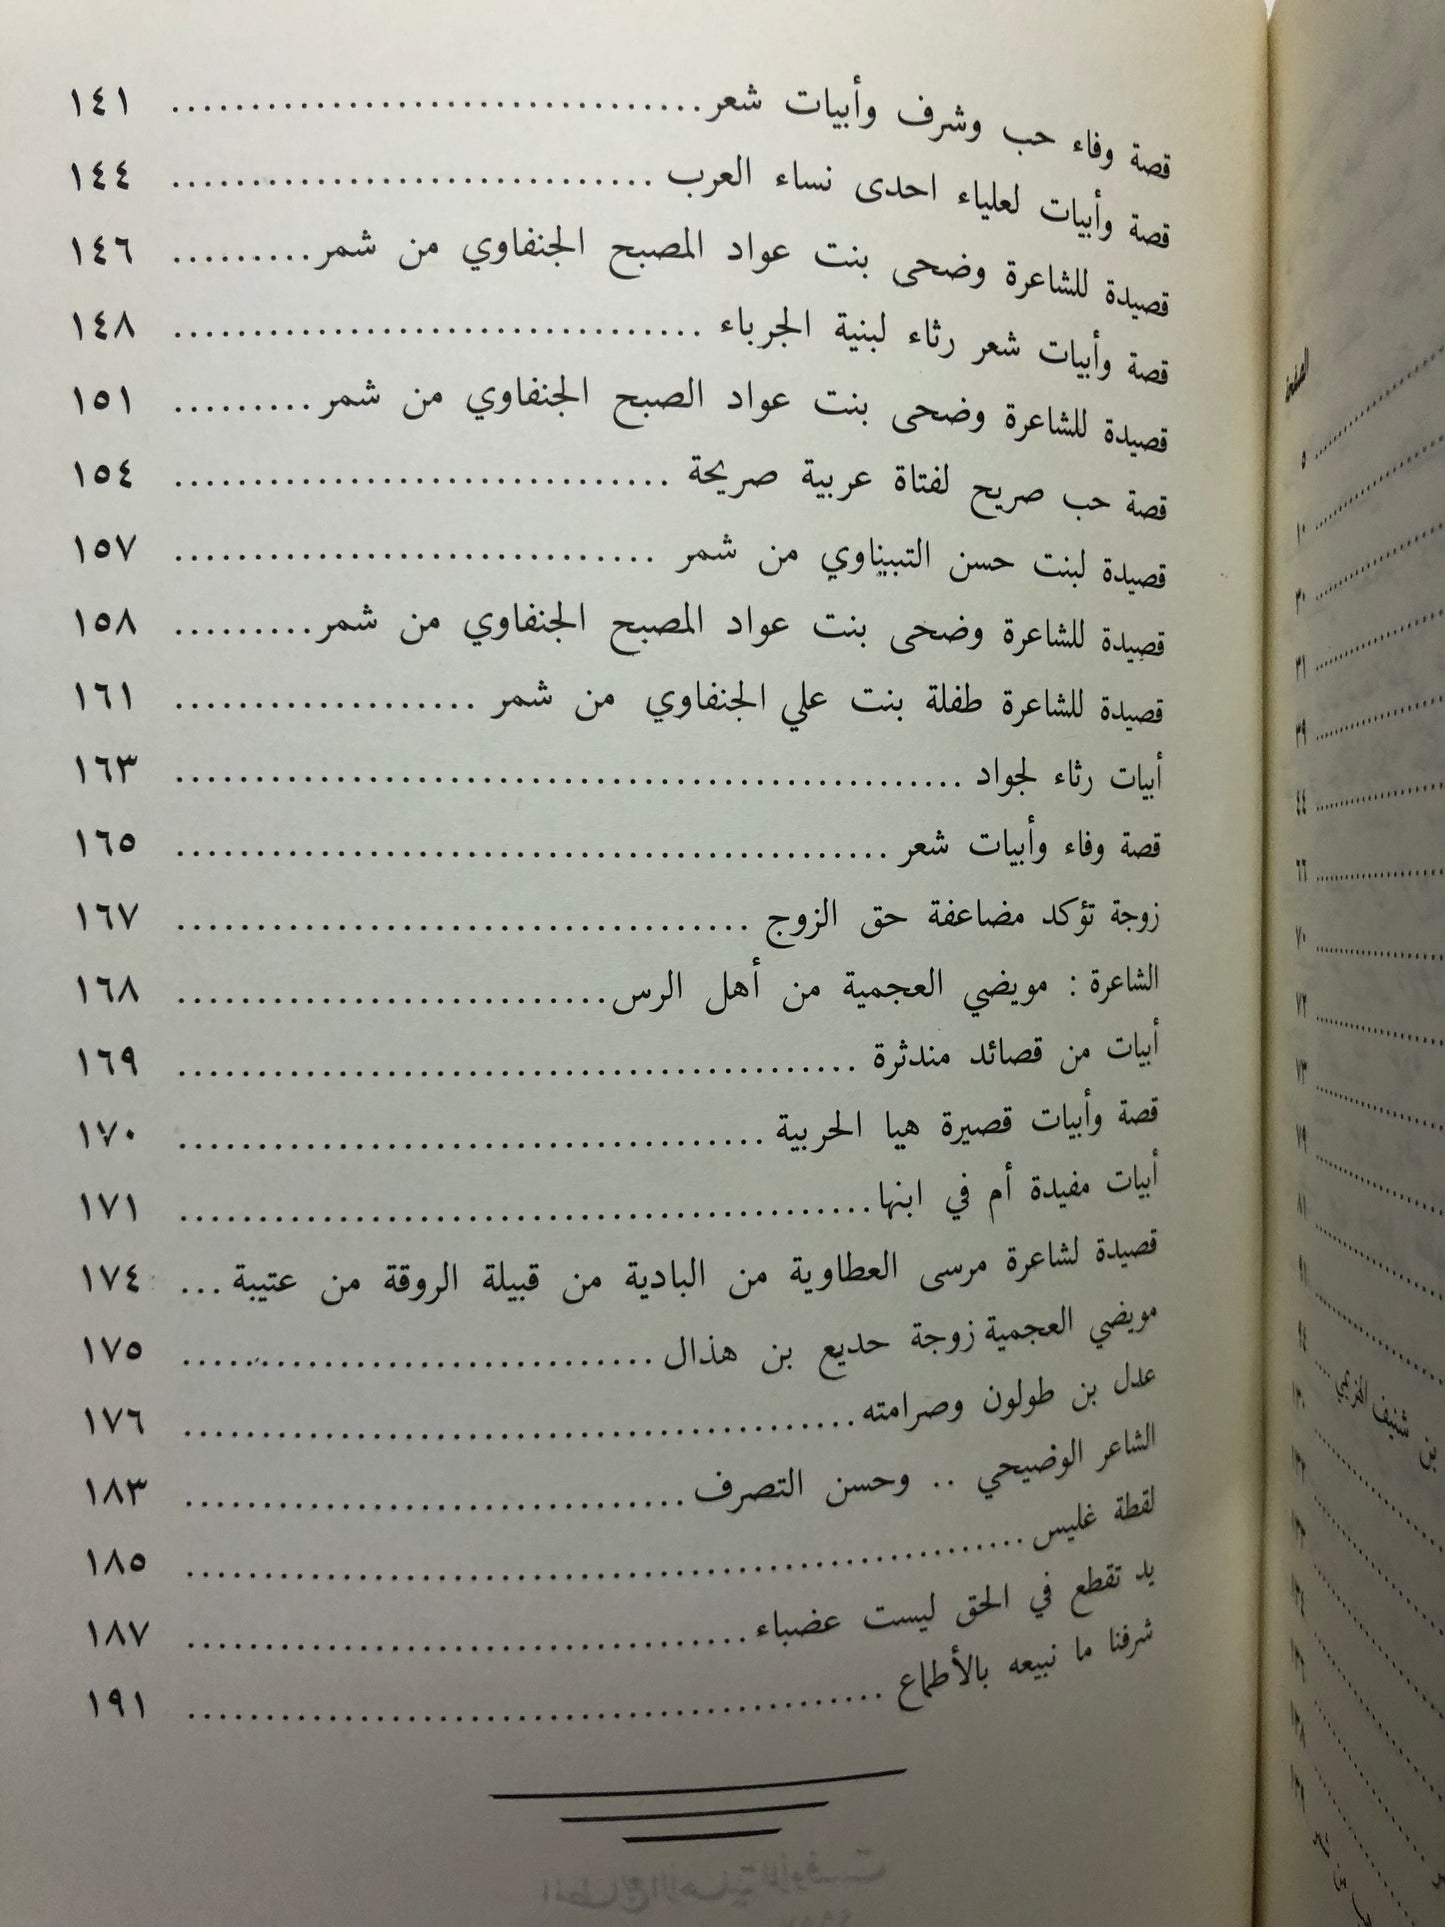 قصة وفاء حب وشرف وأبيات شعر ١٤١
قصة وأبيات لعلياء احدى نساء العرب ١٤٤
قصيدة للشاعرة وضحى بنت عواد المصبح الجنفاوي من شمر ١٤٦
قصة وأبيات شعر رثاء لبنية الجرباء ١٤٨
قصيدة للشاعرة وضحى بنت عواد الصبح الجنفاوي من شمر ١٥١
قصة حب صريح لفتاة عربية صريحة ١٥٤
قصيدة لبنت حسن التبيناوي من شمر ١٥٧
قصيدة للشاعرة وضحى بنت عواد المصبح الجنفاوي من شمر ١٥٨
قصيدة للشاعرة طفلة بنت علي الجنفاوي من شمر ١٦١
أبيات رثاء لجواد ١٦٣
قصة وفاء وأبيات شعر ١٦٥
زوجة تؤكد مضاعفة حق الزوج ١٦٧
الشاعرة : مويضي العجمية من أهل الرس ١٦٨
أبيات من قصائد مندثرة ١٦٩
قصة وأبيات قصيرة هيا الحربية ١٧٠
أبيات مفيدة أم في ابنها ١٧١
قصيدة لشاعرة مرسى العطاوية من البادية من قبيلة الروقة من عتيبة ١٧٤
مويضي العجمية زوجة حديع بن هذال ١٧٥
عدل بن طولون وصرامته ١٧٦
الشاعر الوضيحي .. وحسن التصرف ١٨٣
لقطة غليس ١٨٥
يد تقطع في الحق ليست عضباء ١٨٧
شرفنا ما نبيعه بالأطماع ١٩١
الصفحة
٥
١٠
٣٠
٣١
٣٩
٤٤
٦٦
٧٠
٧٢
٧٣
٧٩
٨١